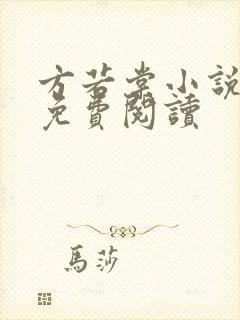 方若棠小說
免費閱讀
馬莎